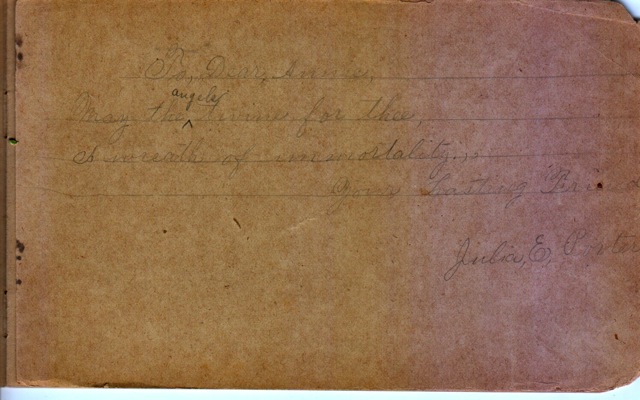 To, Dear, Annie,
May the angels twine for thee,
A wreath of immortality.,
Your lasting Friend
Julia, E, Porter